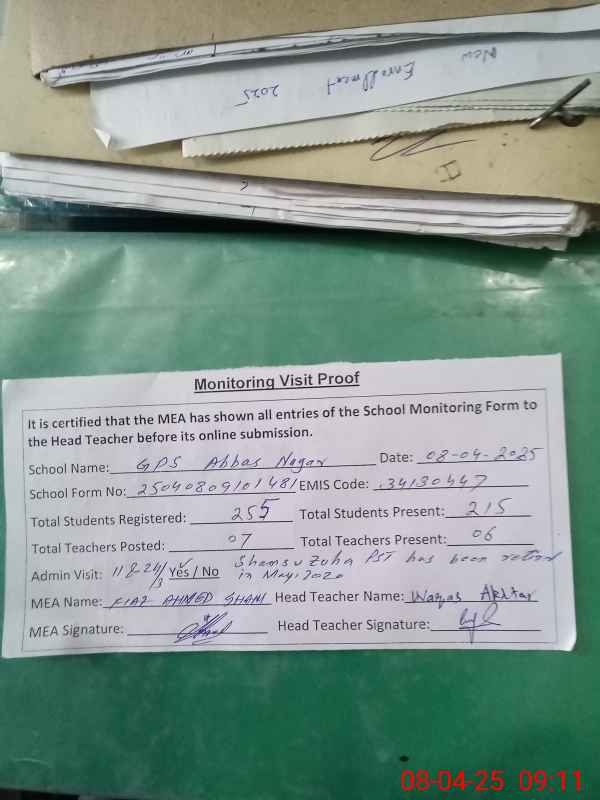 New Enrollment 2025
Monitoring Visit Proof
It is certified that the MEA has shown all entries of the School Monitoring Form to
the Head Teacher before its online submission.
School Name: GPS Abbas Nagar Date: 08-04-2025
School Form No: 25040809101481 EMIS Code: 34130447
Total Students Registered: 255 Total Students Present: 215
Total Teachers Posted: 07 Total Teachers Present: 06
Admin Visit: 11 & 24/3 Yes / No Shamsu Zuha PST has been retired
in May, 2020
MEA Name: FIAZ AHMED SHAM Head Teacher Name: Waqas Akhtar
MEA Signature: Head Teacher Signature:
08-04-25 09:11